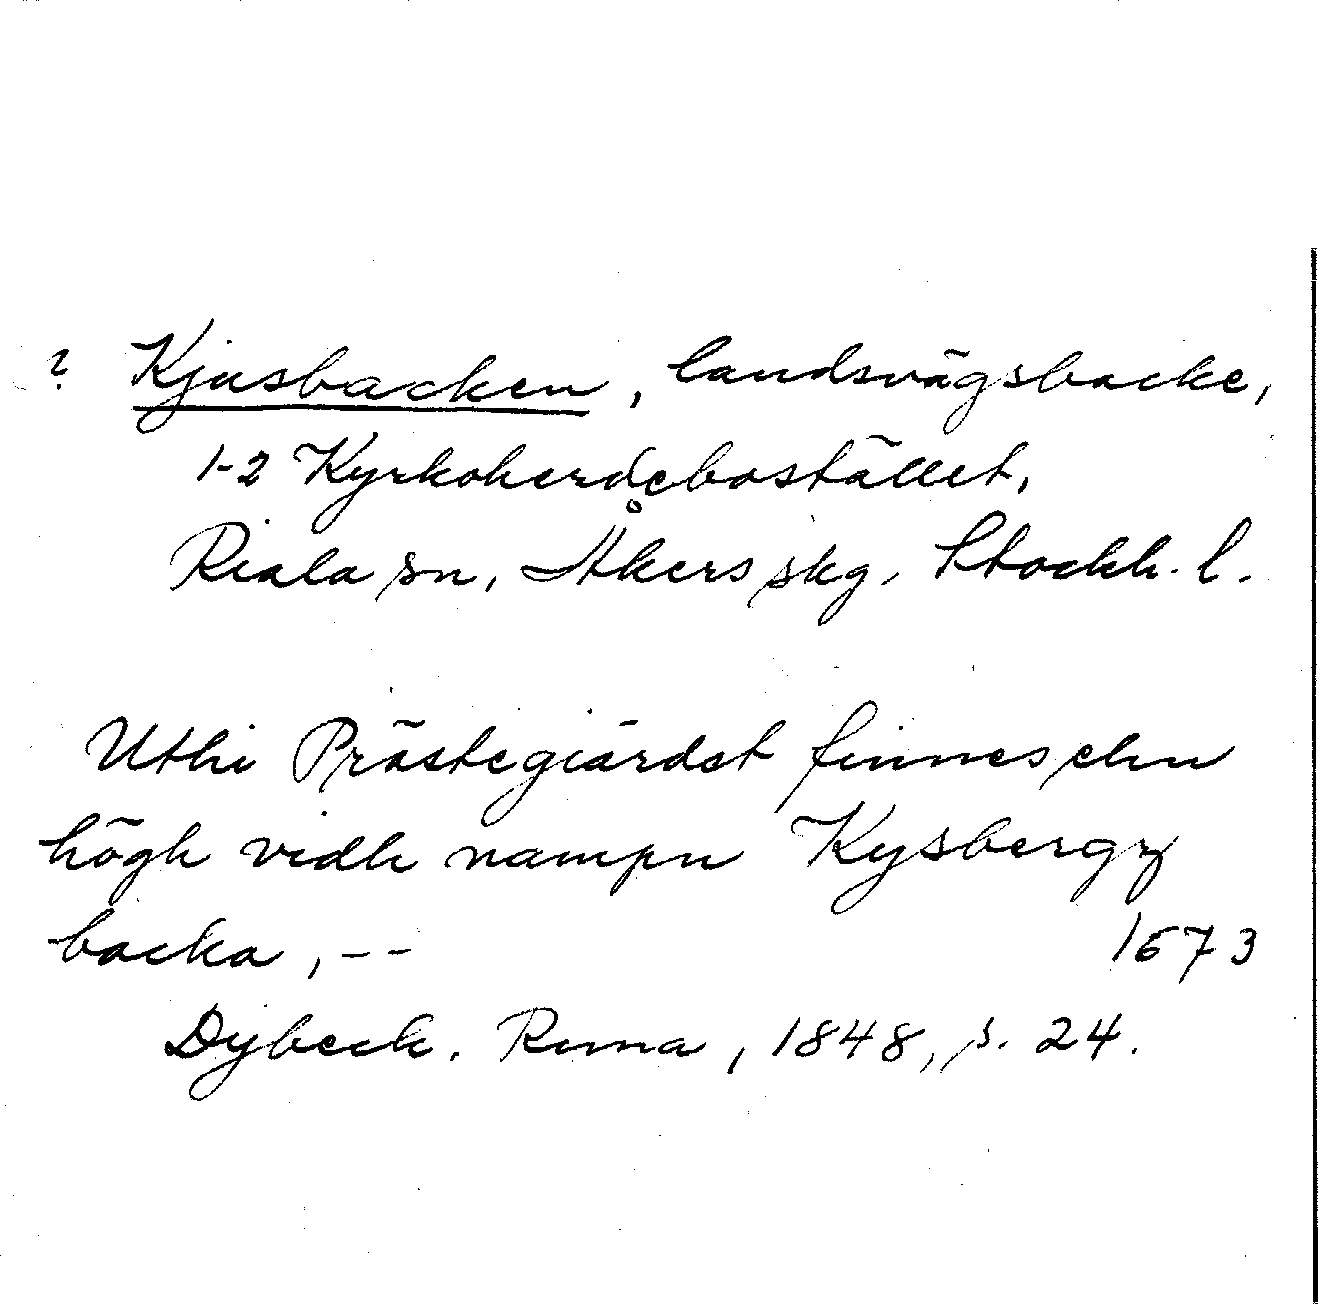 ? Kjusbacken, landsvägsbacke,
1-2 Kyrkoherdebostället,
Riala sn, Åkers skg, Stockh. l.
Uthi Prästegiärdet finnes ehn
högh vidh nampn Kysbergz
backa, --
1673
Dybeck. Runa, 1848, s. 24.